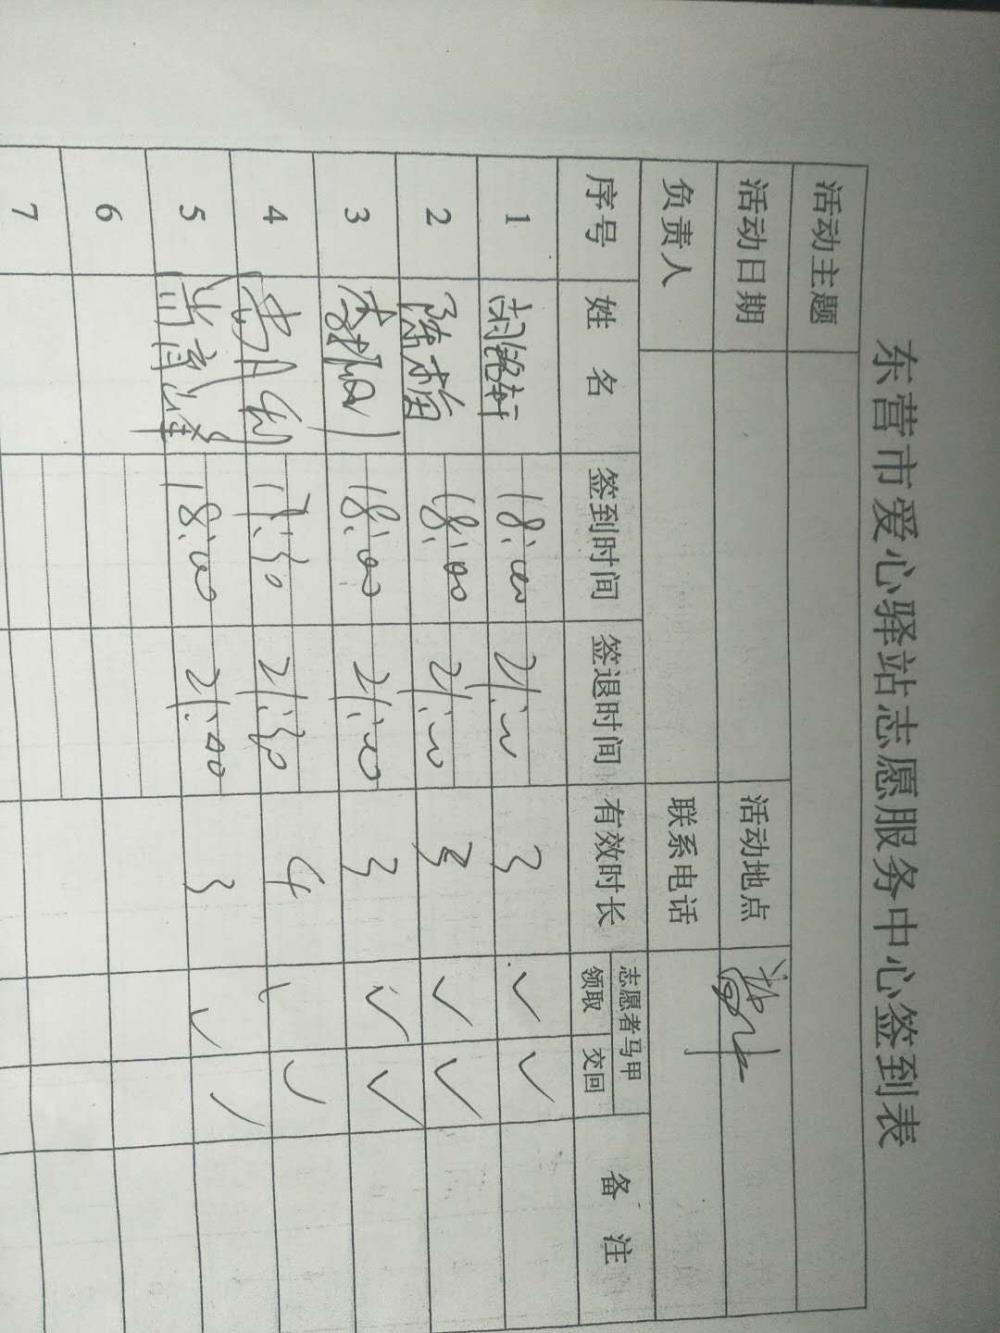 东营市爱心驿站志愿服务中心签到表
活动主题
活动日期 活动地点
负责人 联系电话
序号 姓 名 签到时间 签退时间 有效时长 志愿者马甲 备 注
领取 交回
1 胡铭轩 18:00 21:00 3 ✓ ✓
2 陈 18:00 21:00 3 ✓ ✓
3 李 18:00 21:00 3 ✓ ✓
4 17:30 21:30 4 ✓ ✓
5 18:00 21:00 3 ✓ ✓
6
7